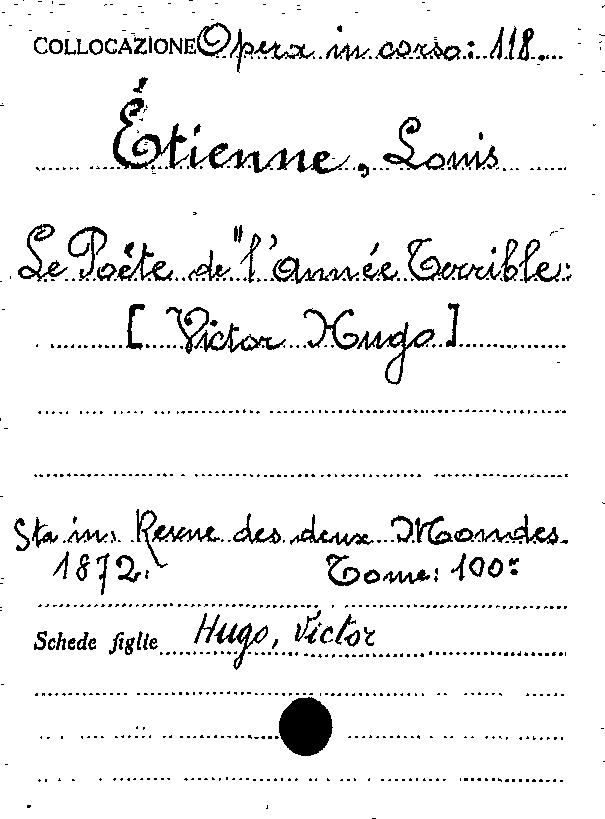 COLLOCAZIONE Opera in corso: 118.
Étienne, Louis
Le Poéte de "l'année Terrible:
[ Victor Hugo ]
Sta in: Revue des deux Mondes.
1872. Tome: 100:
Schede figlie Hugo, Victor